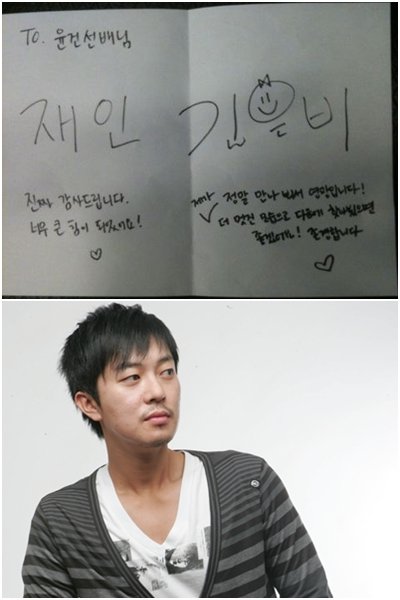 To. 윤건선배님
재인
진짜 감사드립니다.
너무 큰 힘이 되었어요!
김은비
제가 정말 만나 봬서 영광입니다!
더 멋진 모습으로 다음에 찾아뵈면
좋겠네요! 존경합니다